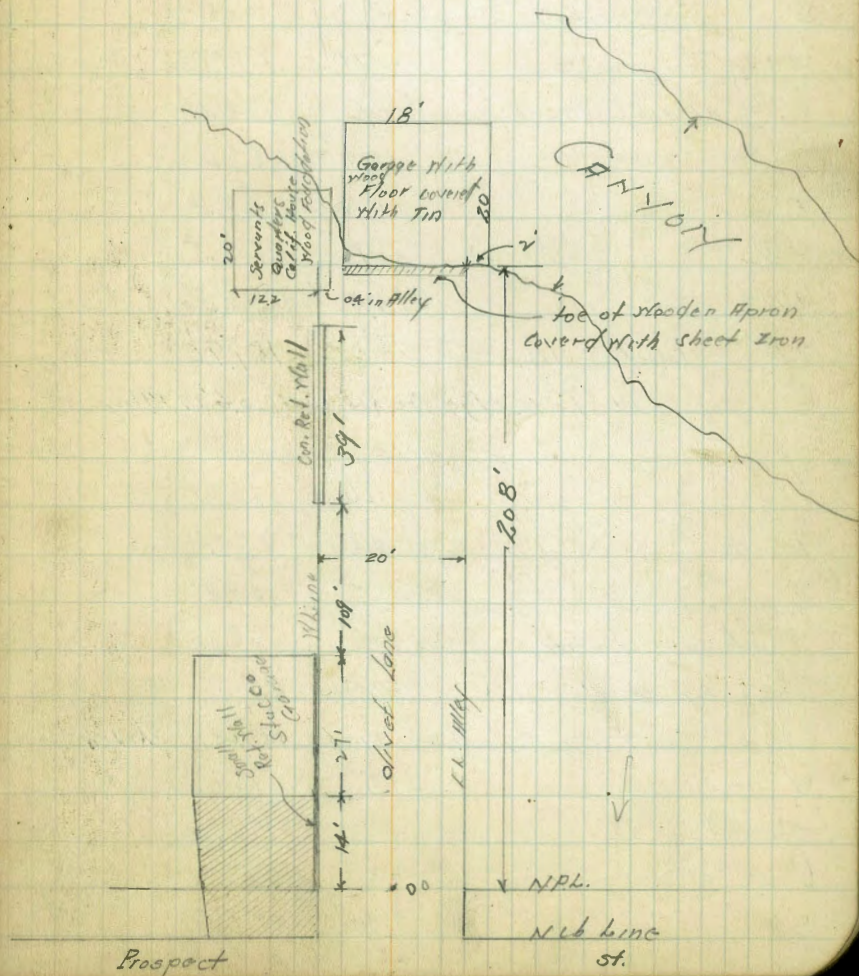 18'
Garage With
Wood
Floor covered
With Tin
20'
CANYON
Servants
Quarters
Calif. House
Wood Foundation
20'
12.2
0.4' in Alley
2'
toe of Wooden Apron
Coverd With sheet Iron
Con. Ret. Wall
39'
208'
20'
W Line
108'
Olivet Lane
Alley
Small
Ret. Wall
Stucco
27'
14'
0⁰⁰
N.P.L.
N cb Line
Prospect
St.